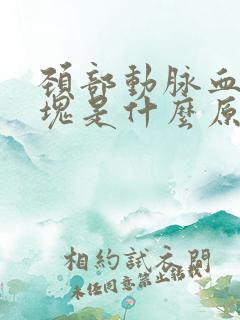 頚部動脉血
塊是什麼原
相約試衣間
未任同意禁止轉載